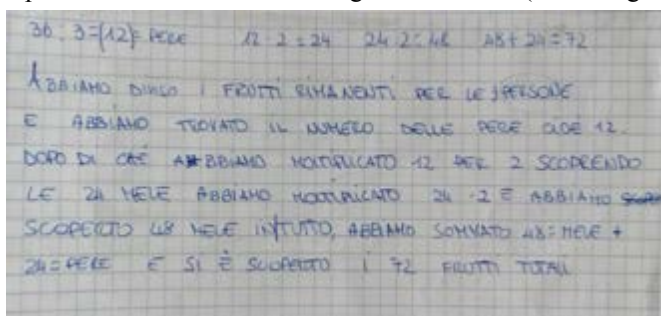 36 : 3 = (12) = PERE 12 · 2 = 24 24 · 2 = 48 48 + 24 = 72
ABBIAMO DIVISO I FRUTTI RIMANENTI PER LE 3 PERSONE
E ABBIAMO TROVATO IL NUMERO DELLE PERE CIOÈ 12.
DOPO DI CHÈ ABBIAMO MOLTIPLICATO 12 PER 2 SCOPRENDO
LE 24 MELE ABBIAMO MOLTIPLICATO 24 · 2 E ABBIAMO
SCOPERTO 48 MELE IN TUTTO, ABBIAMO SOMMATO 48 = MELE +
24 = PERE E SI È SCOPERTO I 72 FRUTTI TOTALI